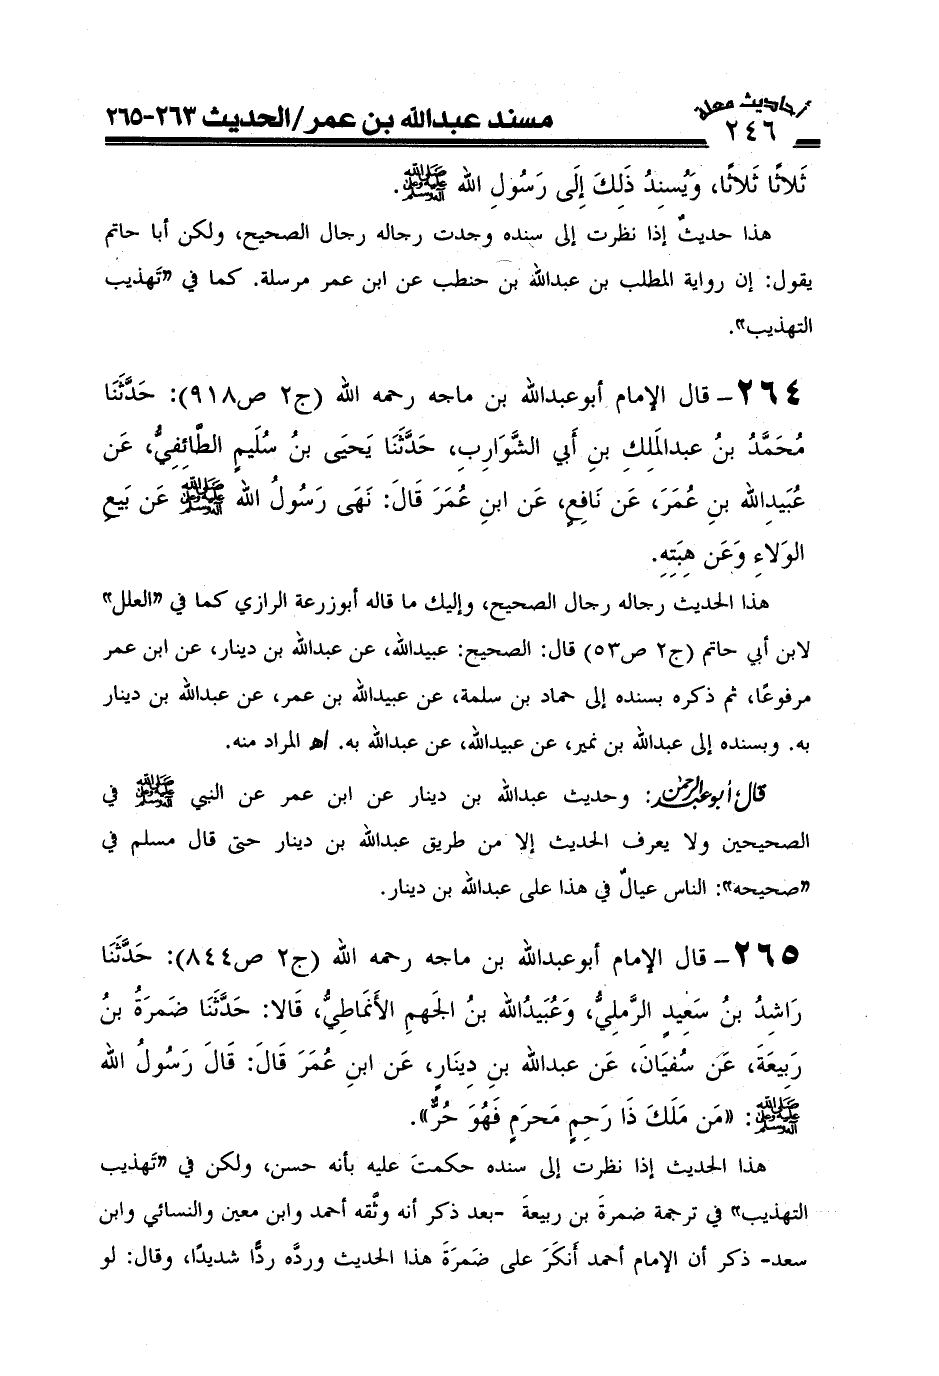 أحاديث معلة
٢٤٦
مسند عبدالله بن عمر/الحديث ٢٦٣-٢٦٥
ثَلَاثًا ثَلَاثًا، وَيُسنِدُ ذَلِكَ إِلَى رَسُولِ الله ﷺ.
هذا حديثٌ إذا نظرت إلى سنده وجدت رجاله رجال الصحيح، ولكن أبا حاتم
يقول: إن رواية المطلب بن عبدالله بن حنطب عن ابن عمر مرسلة. كما في «تَهذيب
التهذيب».
٢٦٤- قال الإمام أبوعبدالله بن ماجه رحمه الله (ج٢ ص٩١٨): حَدَّثَنَا
مُحَمَّدُ بنُ عبدالمَلِكِ بنِ أَبي الشَّوَارِبِ، حَدَّثَنَا يَحيَى بنُ سُلَيمٍ الطَّائِفِيُّ، عَن
عُبَيدِالله بنِ عُمَرَ، عَن نَافِعٍ، عَن ابنِ عُمَرَ قَالَ: نَهَى رَسُولُ الله ﷺ عَن بَيعِ
الوَلَاءِ وَعَن هِبَتِهِ.
هذا الحديث رجاله رجال الصحيح، وإليك ما قاله أبوزرعة الرازي كما في «العلل»
لابن أبي حاتم (ج٢ ص٥٣) قال: الصحيح: عبيدالله، عن عبدالله بن دينار، عن ابن عمر
مرفوعًا، ثم ذكره بسنده إلى حماد بن سلمة، عن عبيدالله بن عمر، عن عبدالله بن دينار
به. وبسنده إلى عبدالله بن نمير، عن عبيدالله، عن عبدالله به. اهـ المراد منه.
قال أبو عبد الرحمن: وحديث عبدالله بن دينار عن ابن عمر عن النبي ﷺ في
الصحيحين ولا يعرف الحديث إلا من طريق عبدالله بن دينار حتى قال مسلم في
«صحيحه»: الناس عيالٌ في هذا على عبدالله بن دينار.
٢٦٥- قال الإمام أبوعبدالله بن ماجه رحمه الله (ج٢ ص٨٤٤): حَدَّثَنَا
رَاشِدُ بنُ سَعِيدٍ الرَّمليُّ، وَعُبَيدُالله بنُ الجَهمِ الأَنمَاطِيُّ، قَالَا: حَدَّثَنَا ضَمرَةُ بنُ
رَبِيعَةَ، عَن سُفيَانَ، عَن عبدالله بنِ دِينَارٍ، عَن ابنِ عُمَرَ قَالَ: قَالَ رَسُولُ الله
ﷺ: «مَن مَلَكَ ذَا رَحِمٍ مَحرَمٍ فَهُوَ حُرٌّ».
هذا الحديث إذا نظرت إلى سنده حكمتَ عليه بأنه حسن، ولكن في «تَهذيب
التهذيب» في ترجمة ضمرةَ بن ربيعةَ -بعد ذكر أنه وثَّقه أحمد وابن معين والنسائي وابن
سعد- ذكر أن الإمام أحمد أَنكَرَ على ضَمرَةَ هذا الحديث وردَّه ردًّا شديدًا، وقال: لو